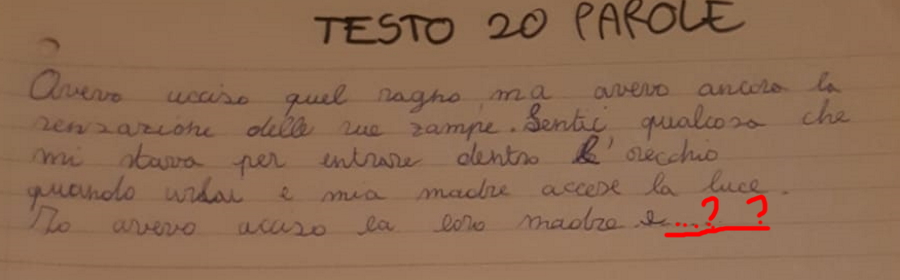 TESTO 20 PAROLE
Avevo ucciso quel ragno, ma avevo ancora la
sensazione delle sue zampe. Sentii qualcosa che
mi stava per entrare dentro l'orecchio
quando urlai e mia madre accese la luce.
Io avevo ucciso la loro madre e...? ?